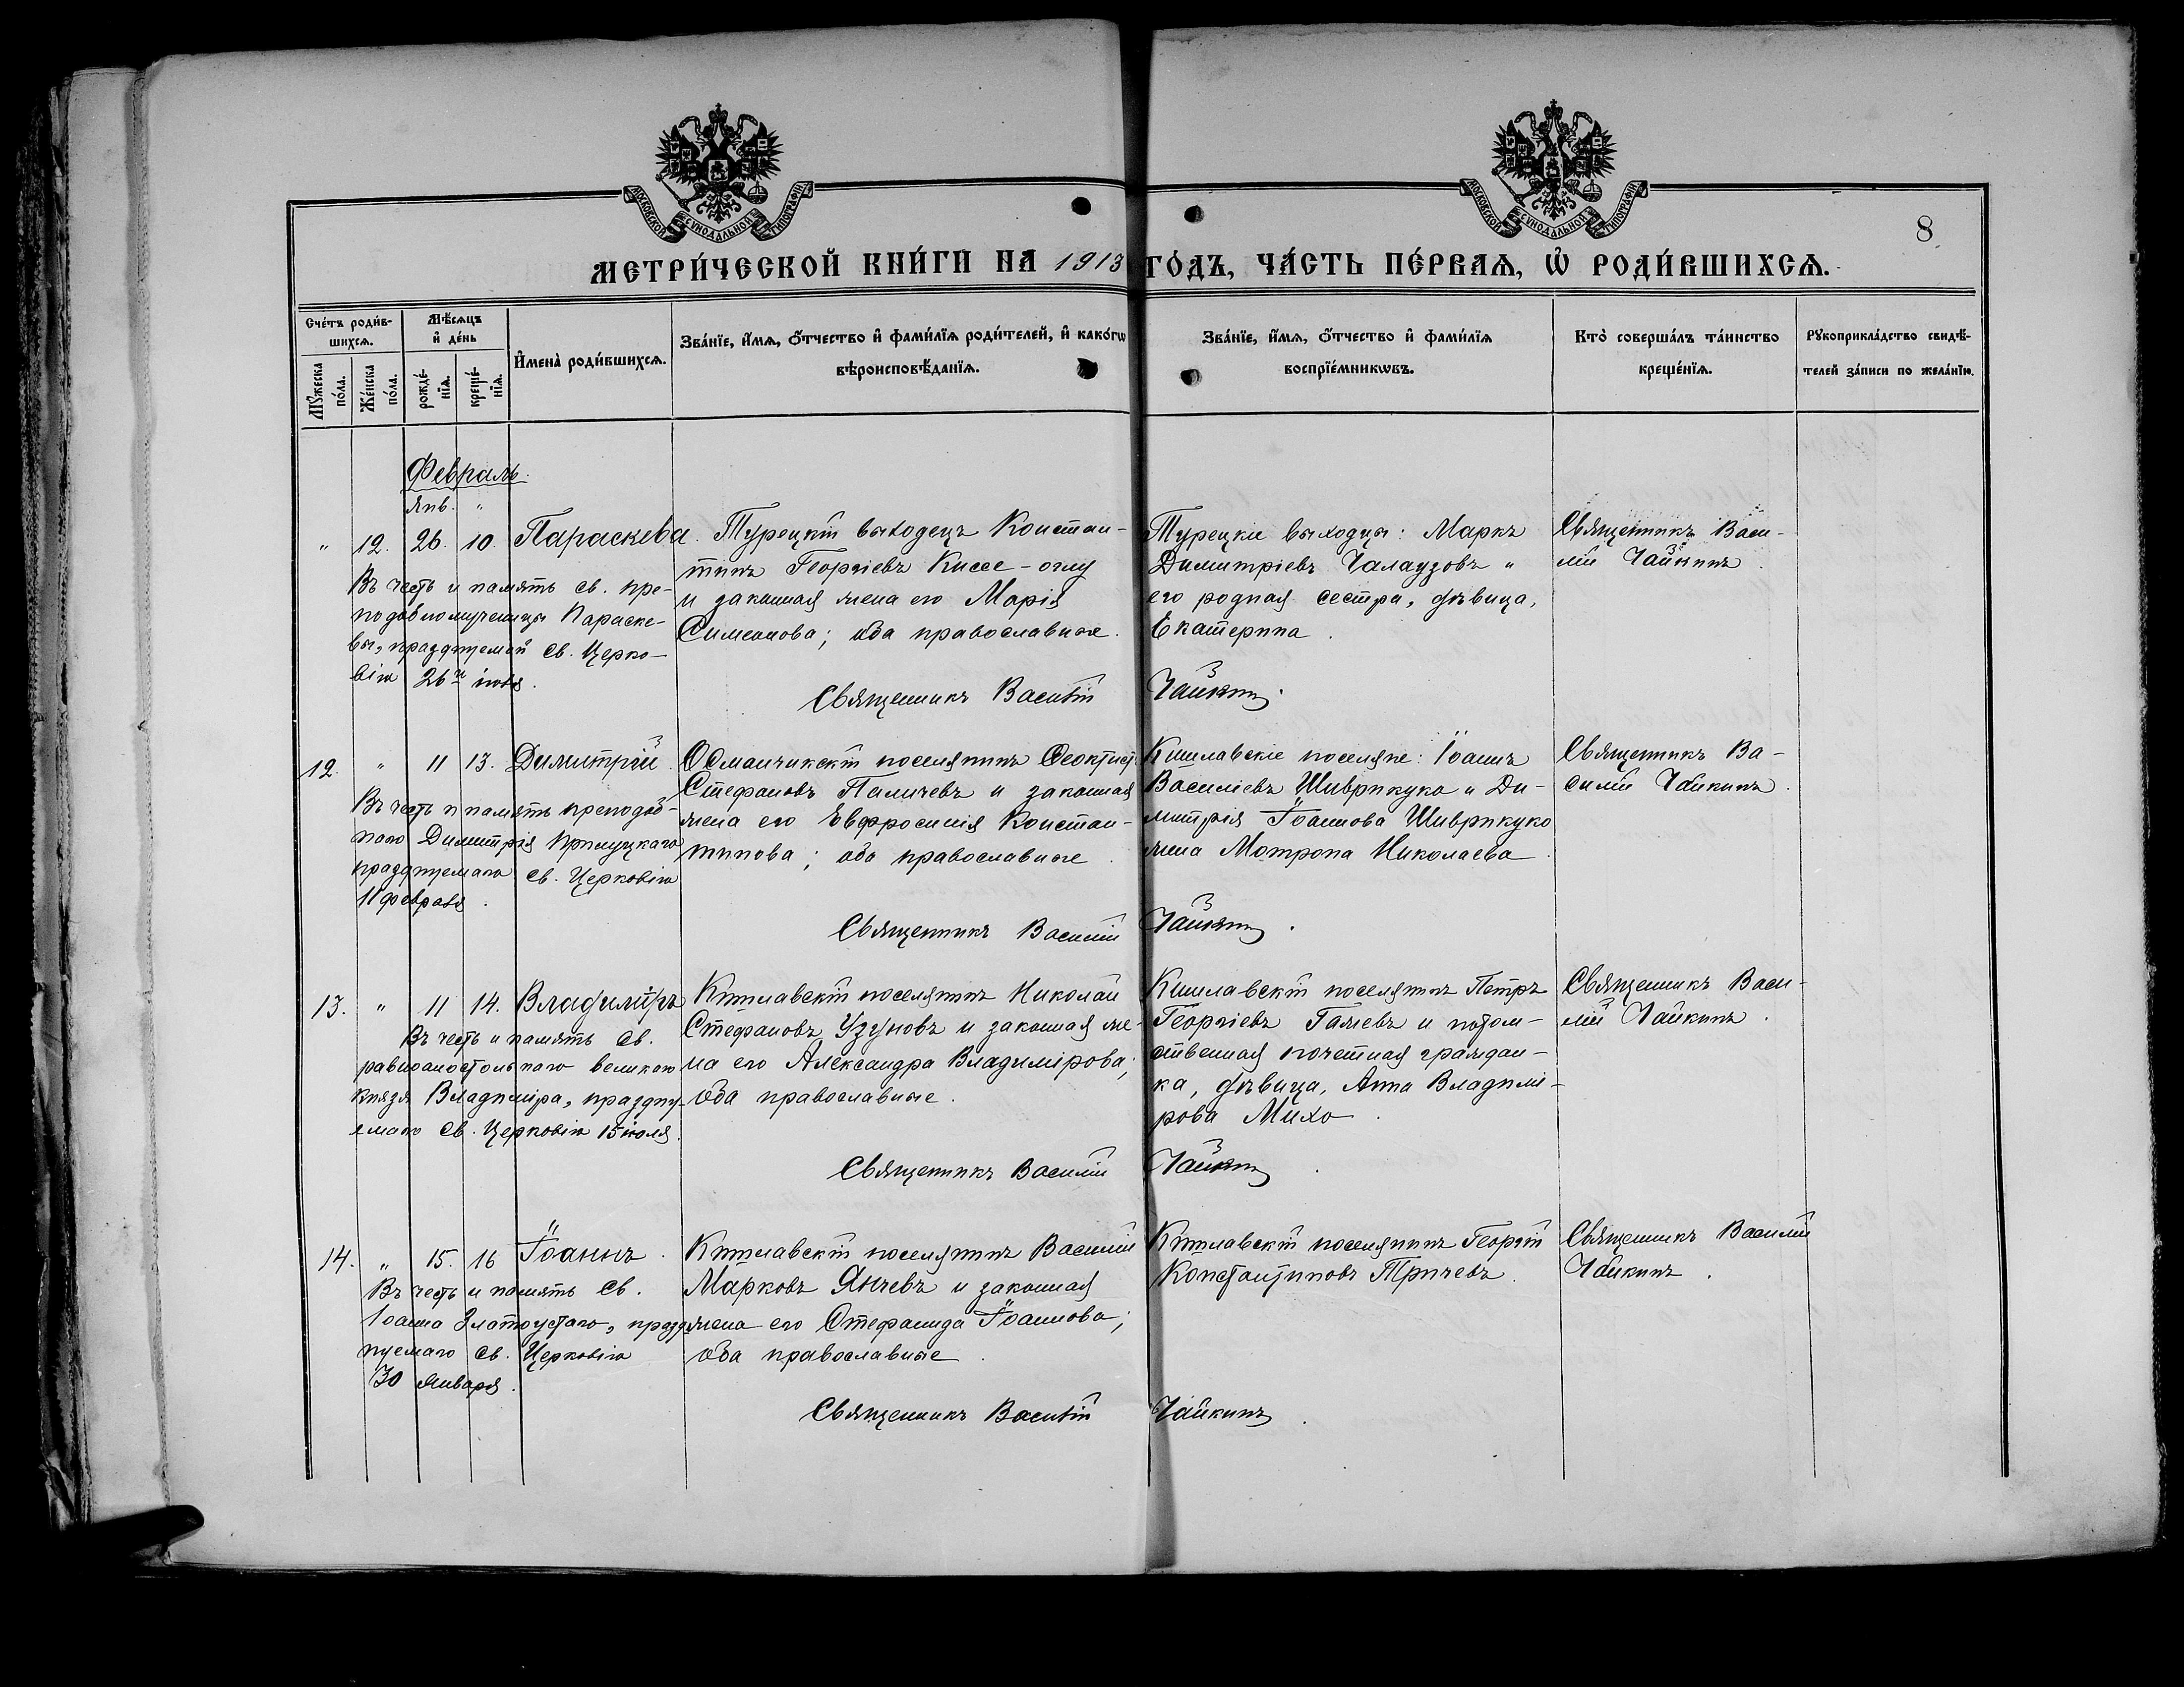 МОСКОВСКОЙ СѴНОДАЛЬНОЙ ТИПОГРАФІИ
МОСКОВСКОЙ СѴНОДАЛЬНОЙ ТИПОГРАФІИ
8
МЕТРИ́ЧЕСКОЙ КНИ́ГИ НА 1913 ГО́ДЪ, ЧА́СТЬ ПЕ́РВАѦ, Ѡ҆ РОДИ́ВШИХСѦ.
Сче́тъ роди́в-
шихсѧ.
Мꙋ́жеска по́ла.
Же́нска по́ла.
Мѣ́сѧцъ
и҆ де́нь
рожде́-
нїѧ.
креще́-
нїѧ.
И҆мена̀ роди́вшихсѧ.
Зва́нїе, и҆́мѧ, ѻ҆́тчество и҆ фами́лїѧ роди́телей, и҆ како́гѡ
вѣроисповѣ́данїѧ.
Зва́нїе, и҆́мѧ, ѻ҆́тчество и҆ фами́лїѧ
воспрїе́мникѡвъ.
Кто̀ соверша́лъ та́инство
креще́нїѧ.
Рꙋкоприкла́дство свидѣ́-
телей за́писи по жела́нїю.
Февраль.
Янв. "
" 12. 26. 10. Параскева.
Въ честь и память св. пре-
подобномученицы Параске-
вы, празднуемой св. Церко-
вію 26го іюля.
Турецкій выходецъ Констан-
тинъ Георгіевъ Киссе-оглу
и законная жена его Марія
Симеонова; оба православные.
Турецкіе выходцы: Маркъ
Димитріевъ Чалаузовъ и
его родная сестра, дѣвица,
Екатерина.
Священникъ Васи-
лій Чайкинъ.
Священникъ Василій Чайкинъ.
12. " 11 13. Димитрій.
Въ честь и память преподоб-
наго Димитрія Прилуцкаго
празднуемаго св. Церковію
11 февраля.
Османчикскій поселянинъ Феоктистъ
Стефановъ Паличевъ и законная
жена его Евфросинія Констан-
тинова; оба православные.
Кишлавскіе поселяне: Іоаннъ
Василіевъ Шиврикуко и Ди-
митрія Іоаннова Шиврикуко
жена Мотрона Николаева.
Священникъ Ва-
силій Чайкинъ.
Священникъ Василій Чайкинъ.
13. " 11 14. Владиміръ
Въ честь и память св.
равноапостольнаго великаго
князя Владиміра, праздну-
емаго св. Церковію 15 іюля.
Кишлавскій поселянинъ Николай
Стефановъ Узуновъ и законная же-
на его Александра Владимірова;
оба православные.
Кишлавскій поселянинъ Петръ
Георгіевъ Галжевъ и потом-
ственная почетная граждан-
ка, дѣвица, Анна Владимі-
рова Михо.
Священникъ Васи-
лій Чайкинъ.
Священникъ Василій Чайкинъ.
14. " 15. 16 Іоаннъ.
Въ честь и память св.
Іоанна Златоустаго, празд-
нуемаго св. Церковію
30 января.
Кишлавскій поселянинъ Василій
Марковъ Янчевъ и законная
жена его Стефанида Іоаннова;
оба православные.
Кишлавскій поселянинъ Георгій
Константиновъ Тричевъ.
Священникъ Василій
Чайкинъ.
Священникъ Василій Чайкинъ.